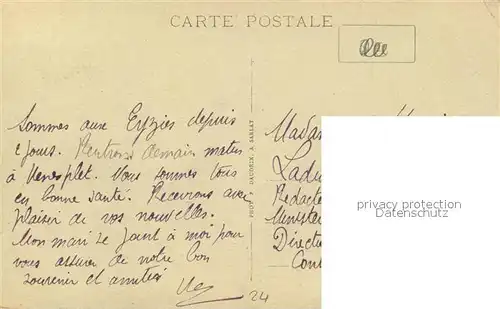 CARTE POSTALE
Sommes aux Eyzies depuis
2 jours. Rentrons demain matin
à Vous sommes tous
en bonne santé. Recevrons avec
plaisir de vos nouvelles.
Mon mari se joint à moi pour
vous assurer de notre bon
souvenir et amitiés
24
PHOT. DAUDRIX, A SARLAT
Madam
Ladu
Rédacte
Minister
Direct
Cont
privacy protection
Datenschutz